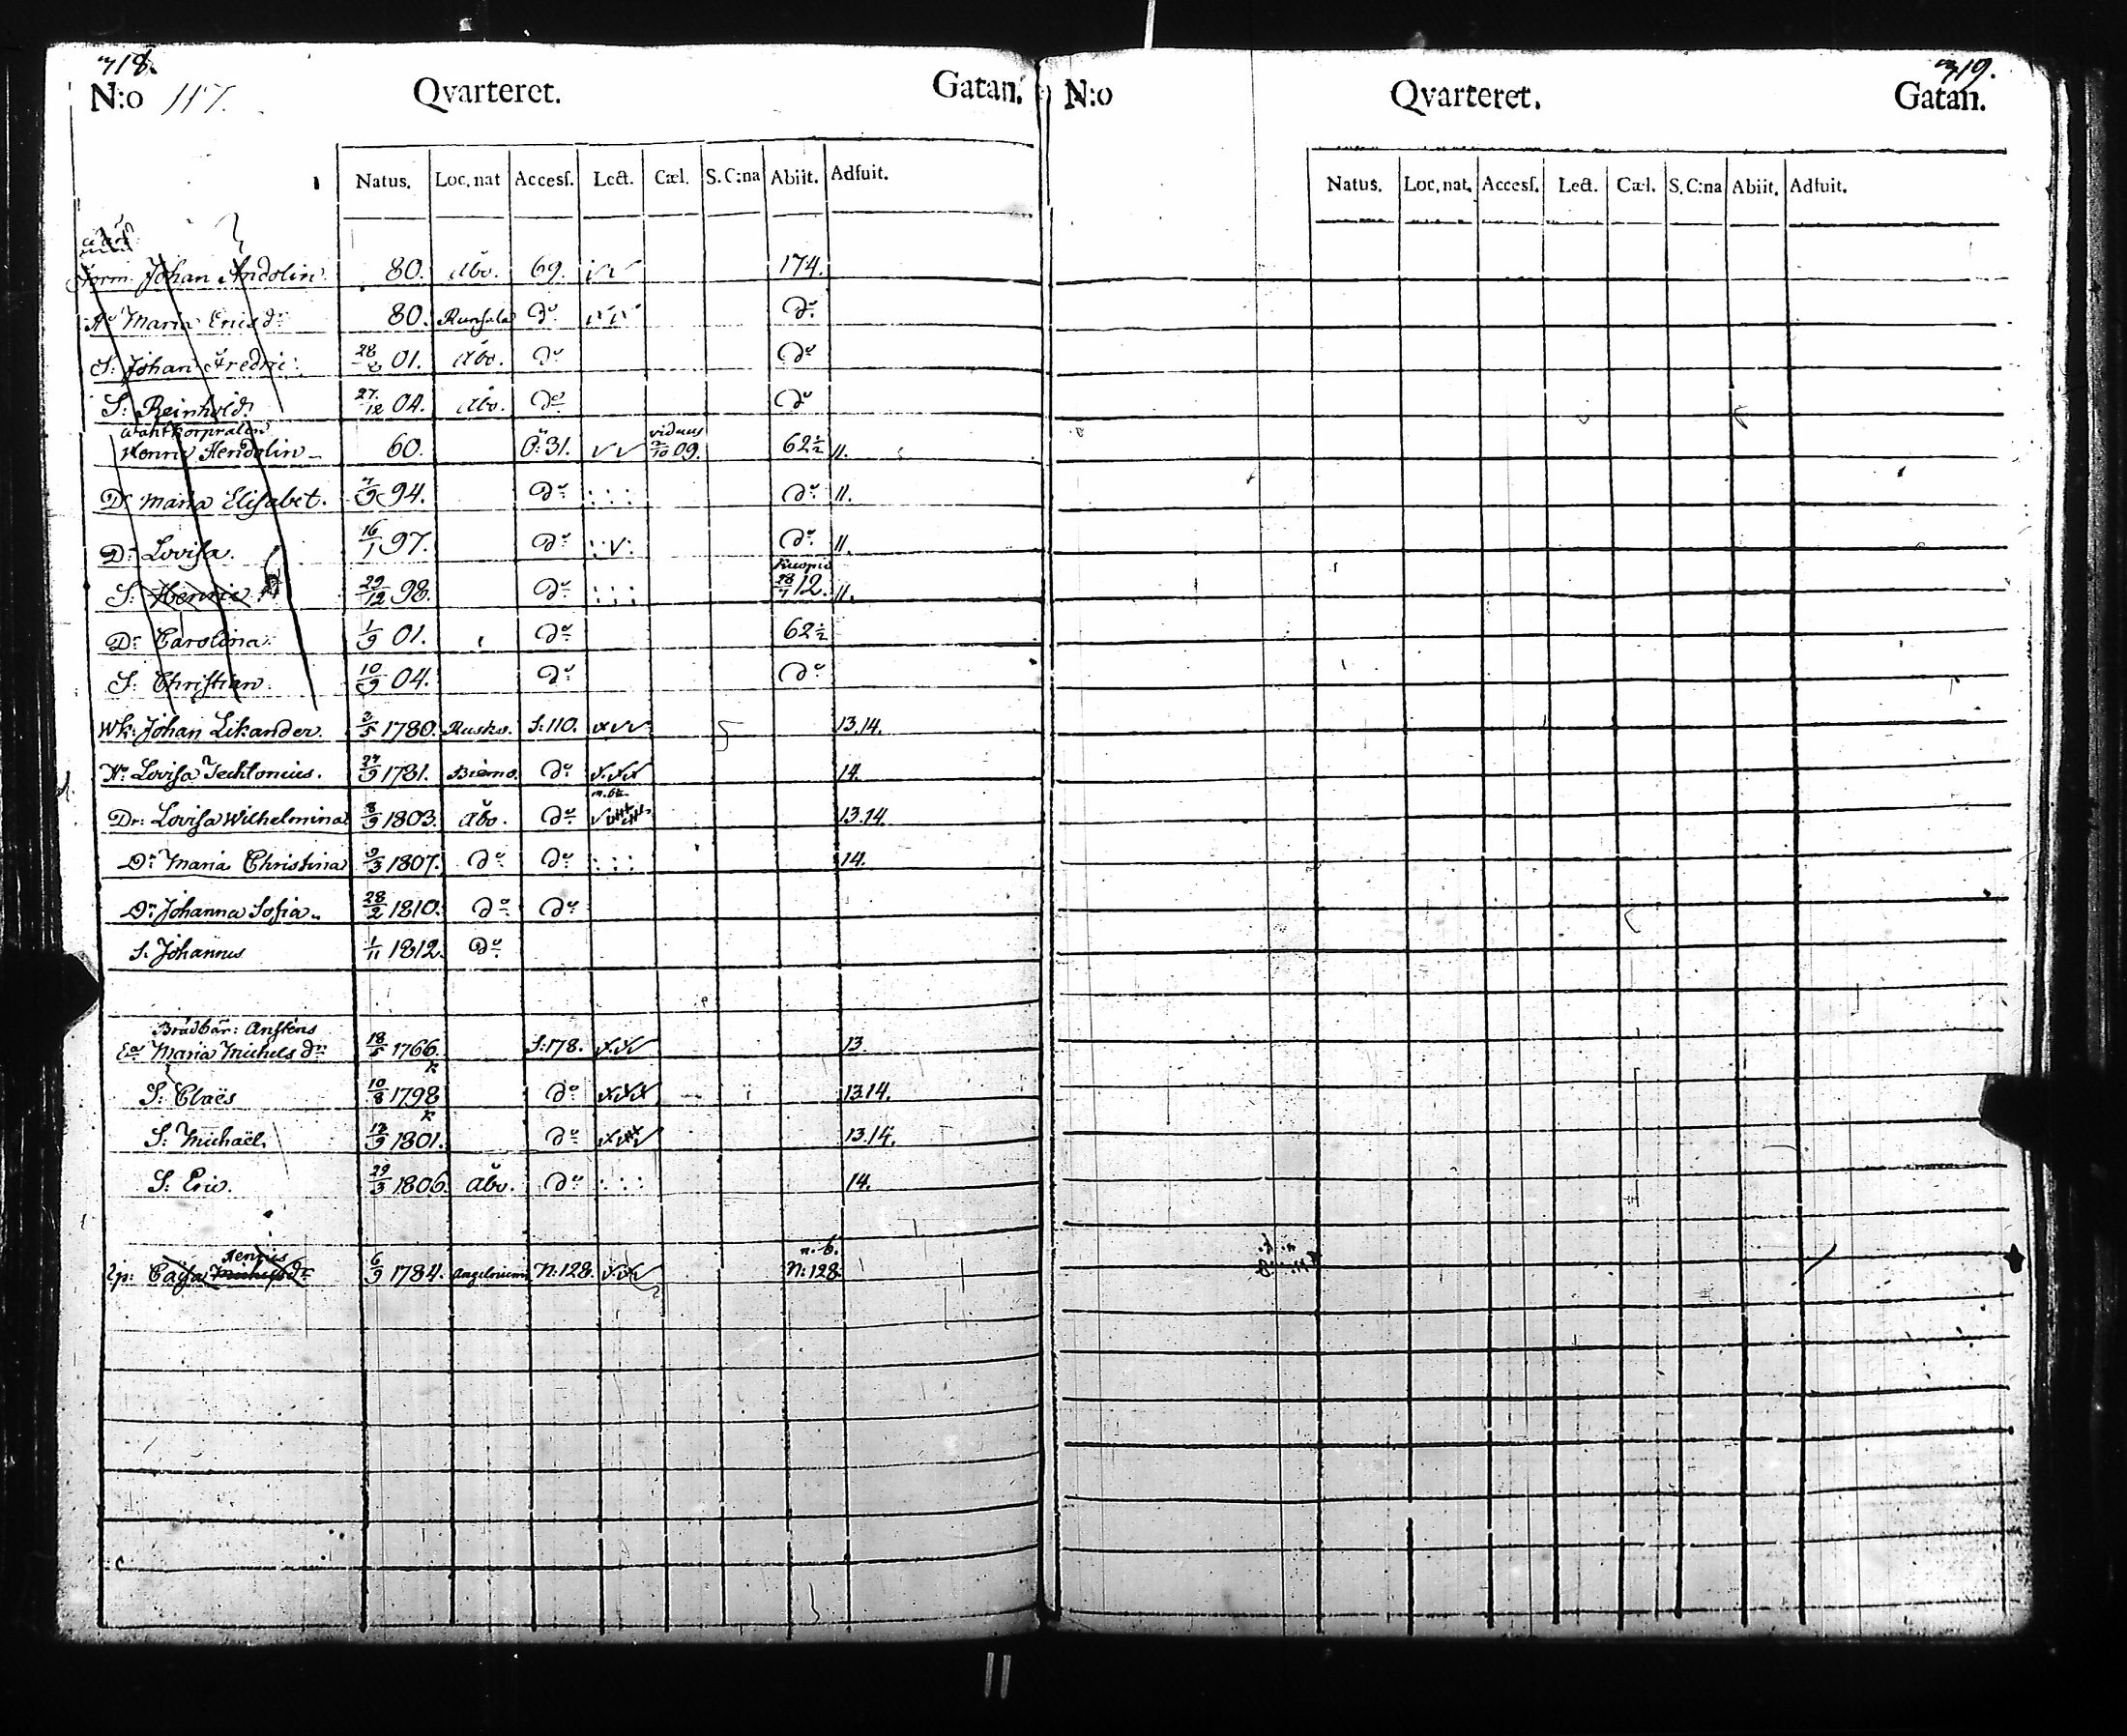 318.
N:o 117. Qvarteret. Gatan.
Natus. Loc. nat Access. Lect. Cæl. S. C:na Abiit. Adfuit.
Johan Andolin 80. Åbo. 69. 174.
Hu Maria Ericsdr 80. Runsala do do
S: Johan Fredric 28/8 01. Åbo. do do
S: Reinhold 27/12 04. Åbo. do do
Waktkorpralen viduus
Henric Hendolin 60. Ö:31. 2/10 09. 62½ 11.
Dr Maria Elisabet. 7/9 94. do do 11.
Dr Lovisa. 16/1 97. do do 11.
Kuopio
S: Henric 29/12 98. do 28/7 12. 11.
Dr Carolina 1/9 01. do 62½
S: Christian 10/9 04. do do
Wk: Johan Likander. 2/5 1780. Rusko. S:110. 13.14.
Hu Lovisa Techtonius. 27/9 1781. Bierno. do 14.
Dr: Lovisa Wilhelmina 8/9 1803. Åbo. do 13.14.
Dr Maria Christina 9/3 1807. do do 14.
Dr Johanna Sofia 28/2 1810. do do
S. Johannes 1/11 1812. do
Brädbär: Ansténs
Ea Maria Michelsdr 18/5 1766. S:178. 13.
S: Claës 10/8 1798 do 13.14.
S: Michaël. 12/9 1801. do 13.14.
S: Eric. 29/3 1806. Åbo. do 14.
Henrics n. b.
Ep: Caisa Michelsdr 6/9 1784. Angelniemi N:128. N:128.
319.
N:o Qvarteret. Gatan.
Natus. Loc. nat. Access. Lect. Cæl. S. C:na Abiit. Adfuit.